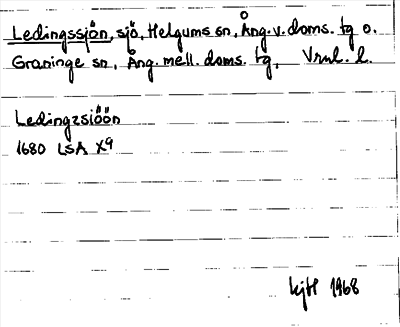 Ledingssjön, sjö, Helgums sn, Ång. v. doms. tg o.
Graninge sn, Ång. mell. doms. tg, Vrnl. l.
Ledingzsiöön
1680 LSA X9
1968